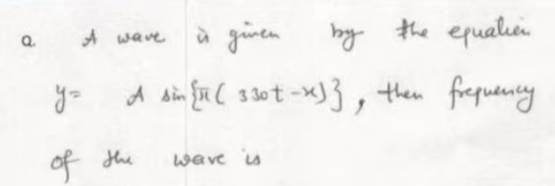 Q. A wave is given by the equation
y= A sin{π( 330t-x)}, then frequency
of the wave is